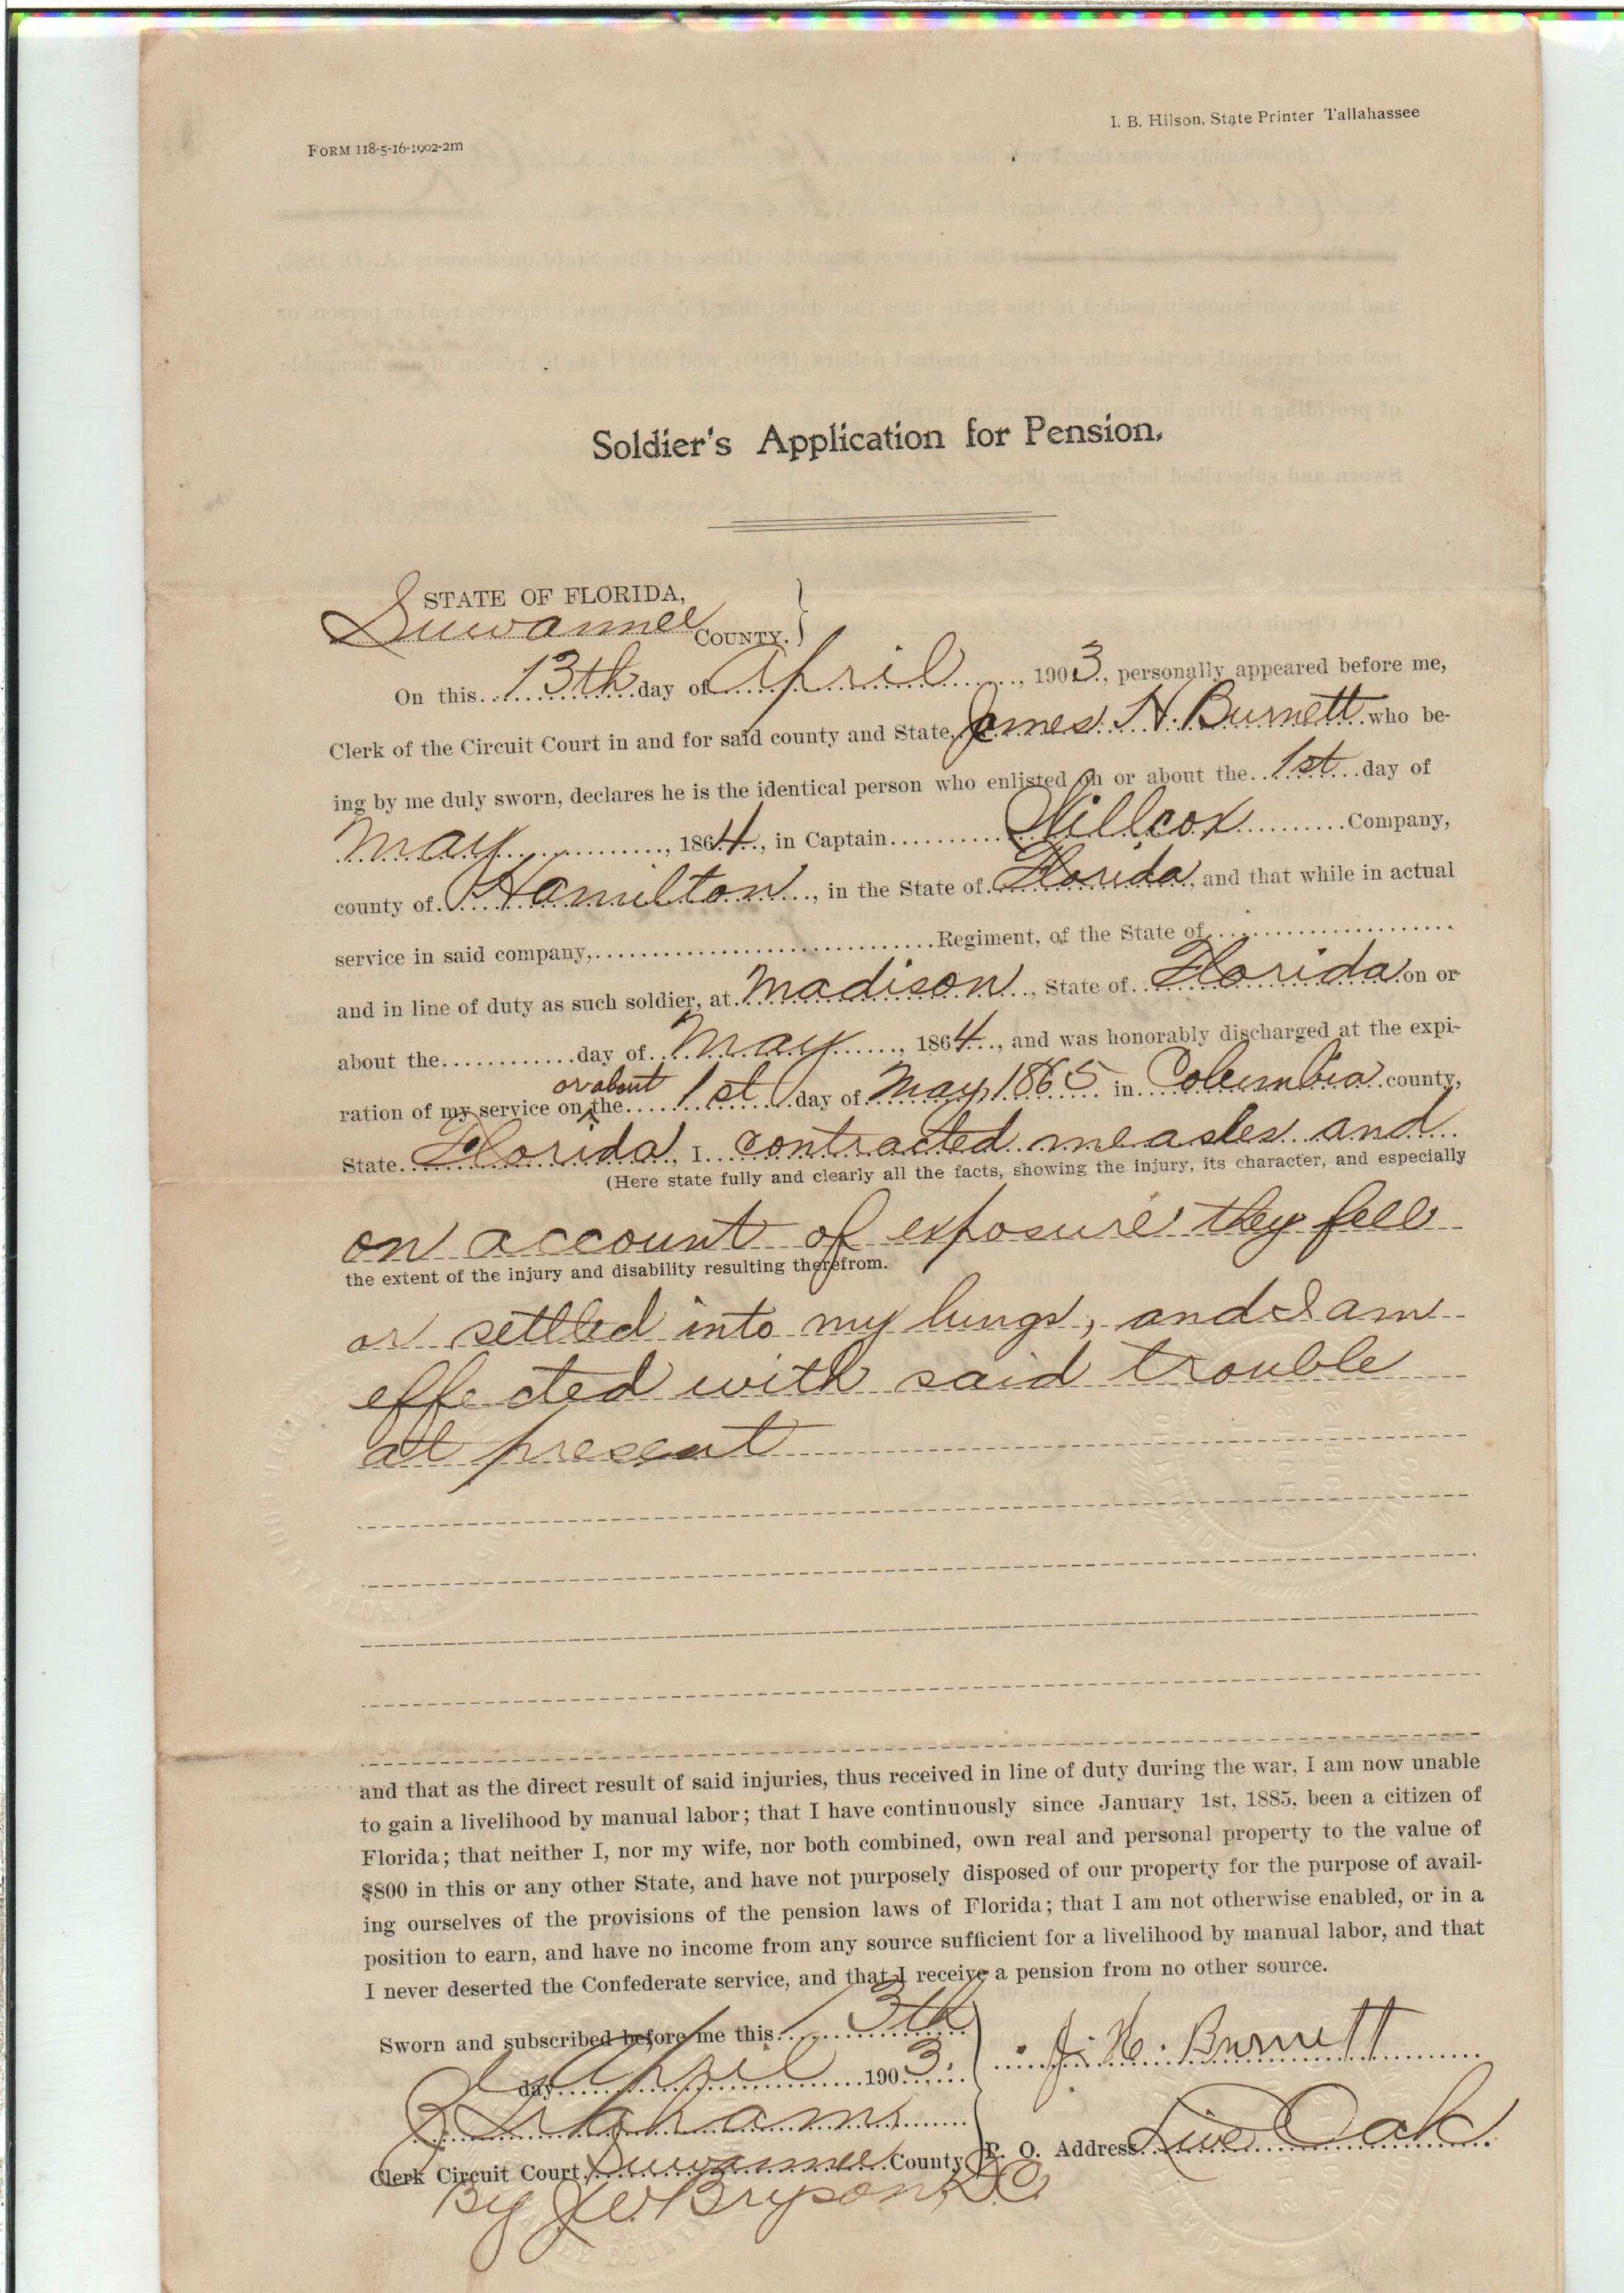 I. B. Hilson, State Printer Tallahassee
FORM 118-5-16-1902-2m
Soldier's Application for Pension.
STATE OF FLORIDA,
Suwannee COUNTY.
On this 13th day of April, 1903, personally appeared before me,
Clerk of the Circuit Court in and for said county and State, James H. Burnett who be-
ing by me duly sworn, declares he is the identical person who enlisted on or about the 1st day of
May, 1864, in Captain Willcox Company,
county of Hamilton, in the State of Florida, and that while in actual
service in said company, Regiment, of the State of
and in line of duty as such soldier, at Madison, State of Florida on or
about the day of May, 1864, and was honorably discharged at the expi-
or about
ration of my service on the 1st day of May, 1865 in Columbia county,
State Florida, I contracted measles and
(Here state fully and clearly all the facts, showing the injury, its character, and especially
on account of exposure they fell
the extent of the injury and disability resulting therefrom.
or settled into my lungs, and I am
effected with said trouble
at present
and that as the direct result of said injuries, thus received in line of duty during the war, I am now unable
to gain a livelihood by manual labor; that I have continuously since January 1st, 1885, been a citizen of
Florida; that neither I, nor my wife, nor both combined, own real and personal property to the value of
$800 in this or any other State, and have not purposely disposed of our property for the purpose of avail-
ing ourselves of the provisions of the pension laws of Florida; that I am not otherwise enabled, or in a
position to earn, and have no income from any source sufficient for a livelihood by manual labor, and that
I never deserted the Confederate service, and that I receive a pension from no other source.
Sworn and subscribed before me this 13th
day April 1903.
J. H. Burnett
Clerk Circuit Court Suwannee County
P. O. Address Live Oak
By J W Bryson, DC